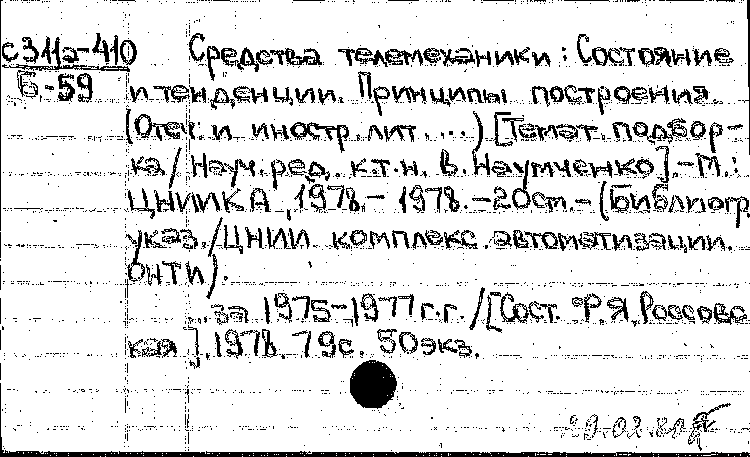 С311а-410 Средства телемеханики: Состояние
Б.-59 и тенденции. Принципы построения.
(Отеч. и иностр. лит. ...) [Темат. подбор-
ка / Науч. ред. к.т.н. В. Наумченко]. - М.:
ЦНИИКА, 1978. - 1978. - 20 см. - (Библиогр.
указ. / ЦНИИ комплекс. автоматизации.
ОНТИ).
...за 1975-1977 г.г. / [Сост. Р.Я. Россовс
кая]. 1978. 79 с. 50 экз.
29.02.80